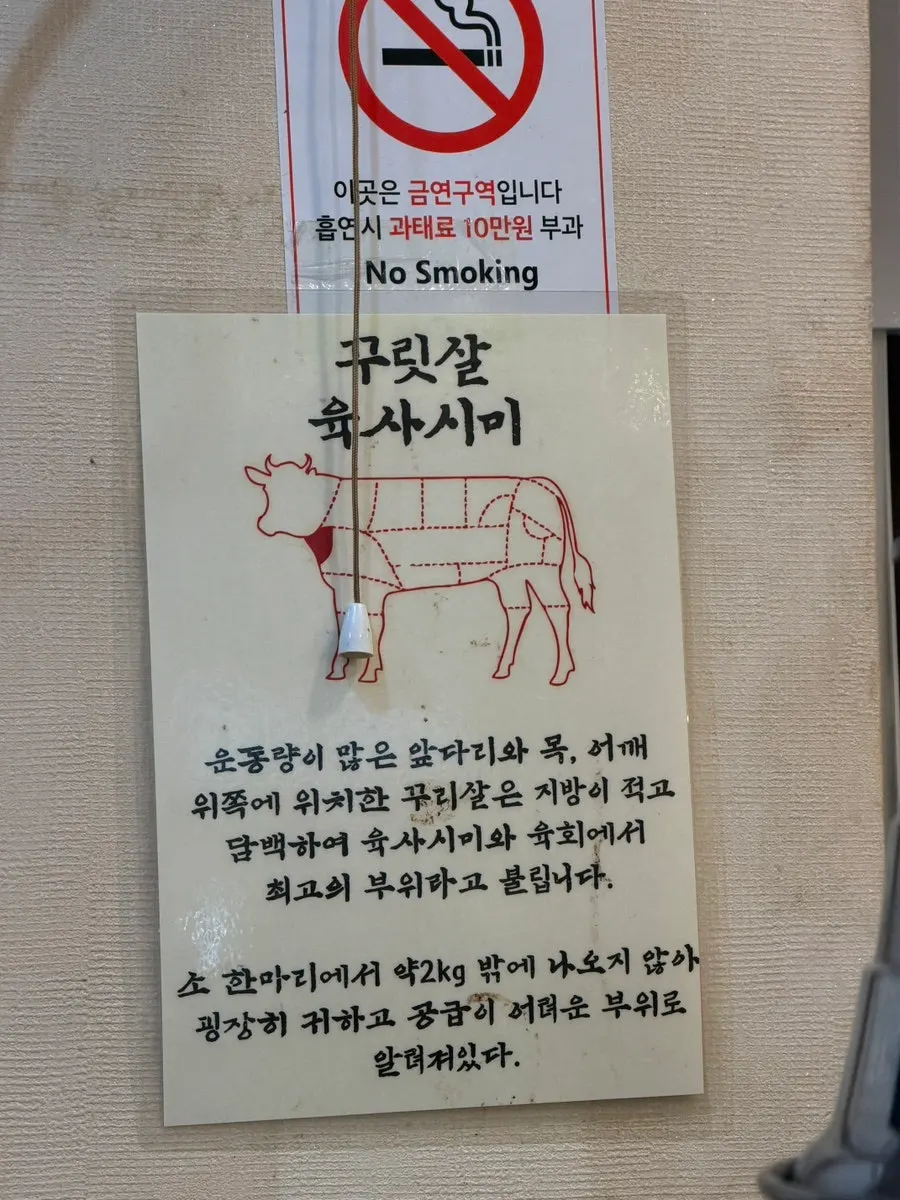 이곳은 금연구역입니다
흡연시 과태료 10만원 부과
No Smoking
꾸릿살
육사시미
운동량이 많은 앞다리와 목, 어깨
위쪽에 위치한 꾸리살은 지방이 적고
담백하여 육사시미와 육회에서
최고의 부위라고 불립니다.
소 한마리에서 약2kg 밖에 나오지 않아
굉장히 귀하고 공급이 어려운 부위로
알려져있다.